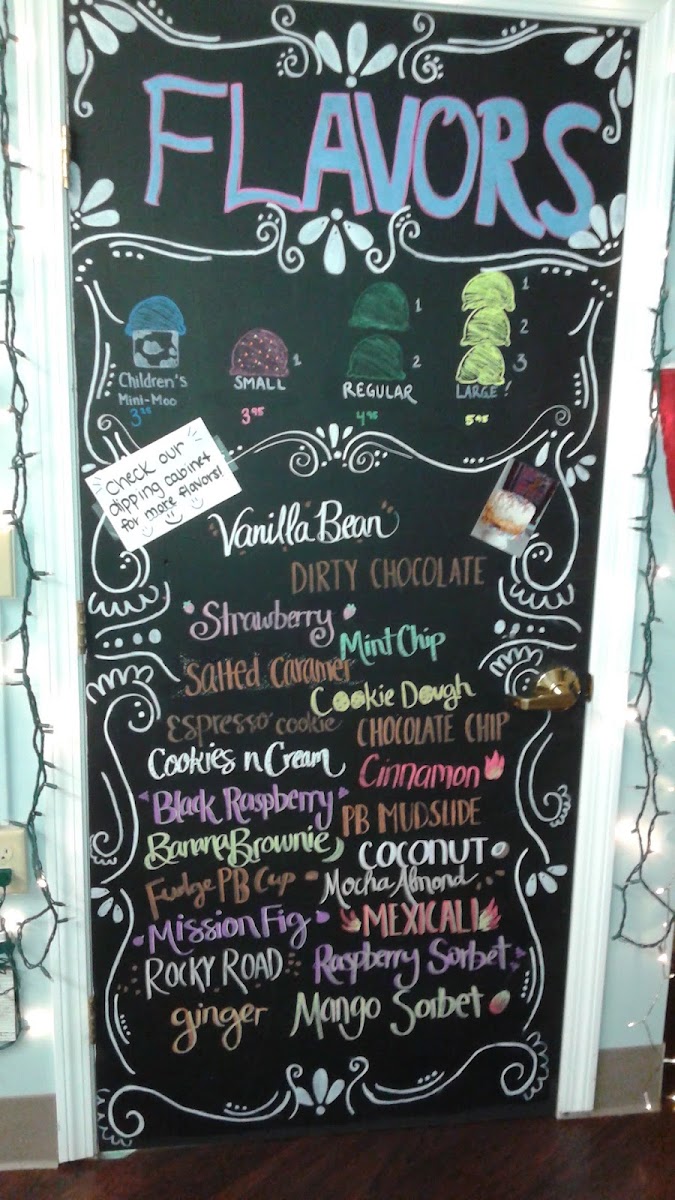 FLAVORS
1
1
1
2
2
3
Children's
Mini-Moo
3.25
SMALL
3.95
REGULAR
4.95
LARGE!
5.95
Check our
dipping cabinet
for more flavors!
Vanilla Bean
DIRTY CHOCOLATE
Strawberry
Mint Chip
Salted Caramel
Cookie Dough
Espresso cookie
CHOCOLATE CHIP
Cookies n Cream
Cinnamon
Black Raspberry
PB MUDSLIDE
Banana Brownie
COCONUT
Fudge PB Cup
Mocha Almond
Mission Fig
MEXICALI
ROCKY ROAD
Raspberry Sorbet
ginger
Mango Sorbet